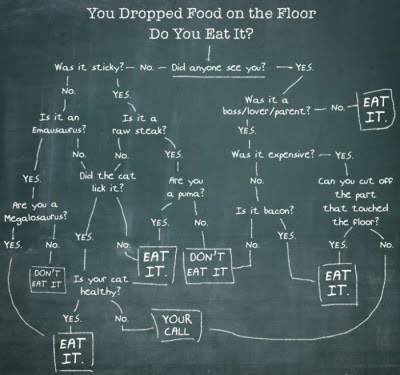 You Dropped Food on the Floor
Do You Eat It?
Was it sticky? No. Did anyone see you? YES.
No. YES.
Was it a boss/lover/parent? No. EAT IT.
Is it an Emausaurus?
Is it a raw steak?
YES.
YES. No. No. YES.
Was it expensive? YES.
Did the cat lick it?
Are you a puma?
No.
Can you cut off the part that touched the floor?
Are you a Megalosaurus?
Is it bacon?
YES. No. YES. No. YES. No. No. YES. YES. No.
DON'T EAT IT
EAT IT.
DON'T EAT IT
EAT IT.
Is your cat healthy?
YES. No. YOUR CALL
EAT IT.